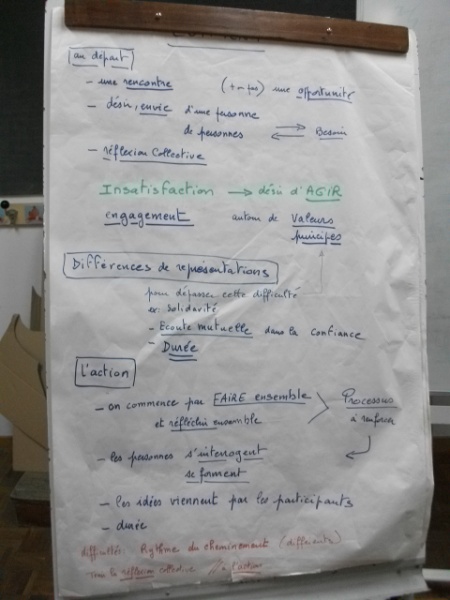 au départ
- une rencontre (+ ou -) une opportunité
- désir, envie d'une personne
de personnes Besoin
- réflexion collective
Insatisfaction → désir d'AGIR
engagement autour de Valeurs
principes
Différences de représentations
pour dépasser cette difficulté
ex: solidarité
- Ecoute mutuelle dans la confiance
- Durée
L'action
- on commence par FAIRE ensemble Processus
et réfléchir ensemble à renforcer
- les personnes s'interrogent
se forment
- les idées viennent par les participants
- durée
difficultés: Rythme du cheminement (différents)
la réflexion collective l'action